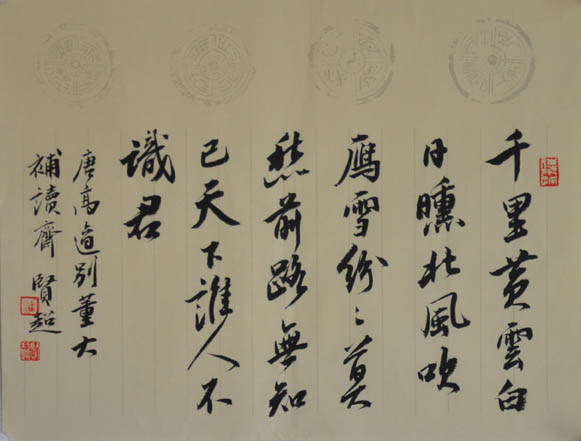 千里黄雲白
日曛北風吹
鴈雪紛々莫
愁前路無知
己天下誰人不
識君
唐高適別董大
補讀齋賢超